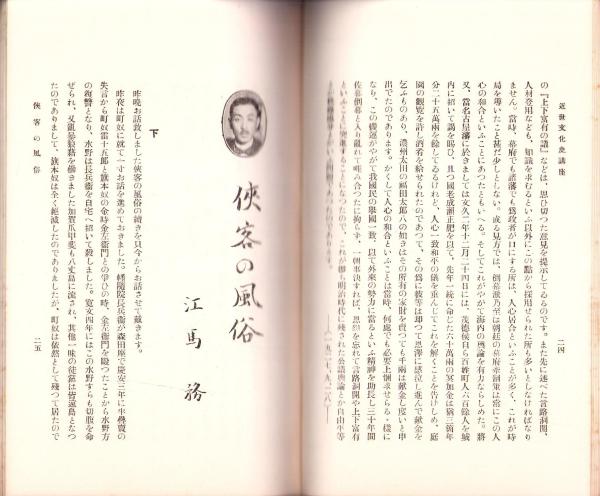 近世文化史講座
の『上下富有の議』などは、思ひ切つた意見を提示してゐるのです。また先に述べた言路洞開、
人材登用なども、知識を求むるといふ以外にこの點から採用せられた所も多いとしなければなり
ません。當時、幕府でも諸藩でも爲政者が口にする所は、人心居合といふことが多く、これが時
局を導いたこと甚だ少しとしない。或る見方では、倒幕派乃至は朝廷の幕府牽制策は常にこの人
心の和合といふことにあつたともいへる。そしてこれがやがて海内の輿論を有力ならしめた。將
又、當名古屋藩に於きましては文久二年十二月二十四日には、茂德候自ら百姓町人六百餘人を城
內に招いて謁を賜ひ、且つ國老成瀨正肥を以て、先年一統に命じた六十萬兩の冥加金は猶三箇年
分二十五萬兩を餘してゐるけれど、人心一致和平の議を重んじてこれを解くことを告げしめ、庭
園の觀覽を許し酒肴を給せられたのであつて、その爲に彼等は却つて恩澤に感泣し進んで獻金を
乞ふものあり、濃州太田の福田太郎八の如きはその所有の家財を賣つても千兩は獻金し度いと申
出でたのであります。かくして人心の和合といふことは當時、何處でも必要上慨求せらる・樣に
なり、この機運がやがて我國民の擧國一致、以て外來の勢力に當るといふ精神を助長し三十年間
佐幕倒幕と入り亂れて啀み合つたに拘らず、一朝事決すれば、恩怨を忘れて言路洞開や上下富有
といふことに突進することになつたので、これが卽ち明治時代に殘された公議輿論とか自由平等
二四
俠客の風俗
江馬務
下
昨晚お話致しました俠客の風俗の續きを只今からお話させて戴きます。
昨夜は町奴に就て一寸お話を進めておきました。幡隨院長兵衞が森田座で慶安三年に半疊賣の
失言から町奴雷十五郎と旗本奴の金時金左衞門との爭ひの時、金左衞門を毆つたことから水野方
の復讐となり、水野は長兵衞を自宅へ招いて殺しました。寬文四年にはこの水野すらも切腹を命
ぜられ、又亂暴狼藉を働きました加賀爪甲斐も八丈島に流され、其他一味の徒黨は皆遠島となつ
たのでありまして、旗本奴は全く絕滅したのでありましたが、町奴は依然として殘つて居たので
俠客の風俗
二五